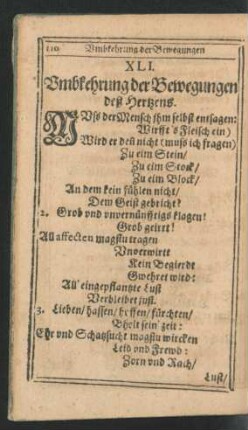 110 Vmbkehrung der Bewegungen
XLI.
Vmbkehrung der Bewegungen
deß Hertzens.
MVß der Mensch jhm selbst entsagen:
Wirfft's Fleisch ein)
Wird er deñ nicht (muß ich fragen)
Zu eim Stein/
Zu eim Stock/
Zu eim Block/
An dem kein fühlen nicht/
Dem Geist gebricht?
2. Grob vnd vnvernünfftigs klagen!
Grob geirrt!
All affecten magstu tragen
Vnverwirrt
Kein Begierdt
Gwehret wird:
All' eingepflangte Lust
Verbleibet just.
3. Lieben/ hassen/ hoffen/ fürchten/
Bhelt sein' zeit:
Ehr vnd Schatzsucht magstu wircken
Leid vnd Frewd:
Zorn vnd Rach/
Lust/